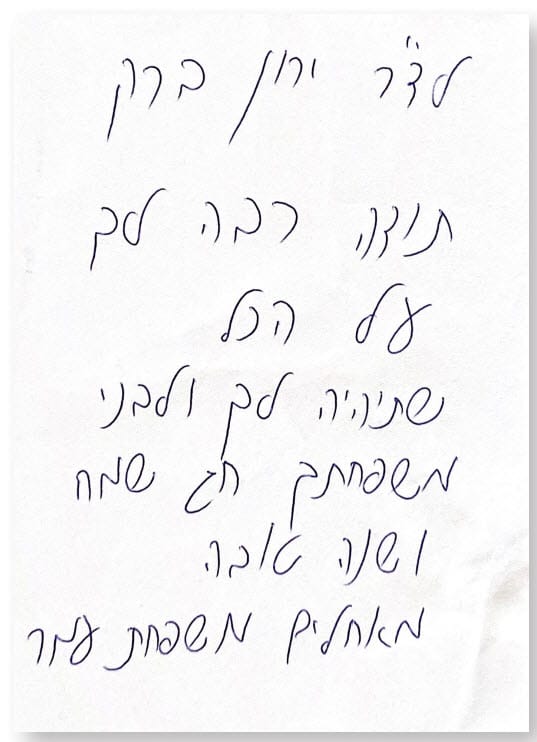 לד"ר ירון ברק
תודה רבה לך
על הכל
שתיהיה לך ולבני
משפחתך חג שמח
ושנה טובה
מאחלים משפחת עמר